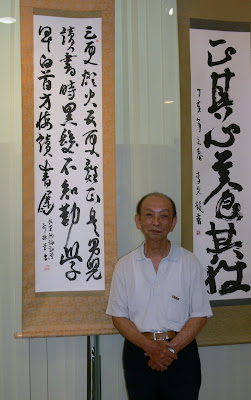 三更燈火五更雞正是男兒
讀書時黑髮不知勤學
早白首方悔讀書遲
正其心養其性